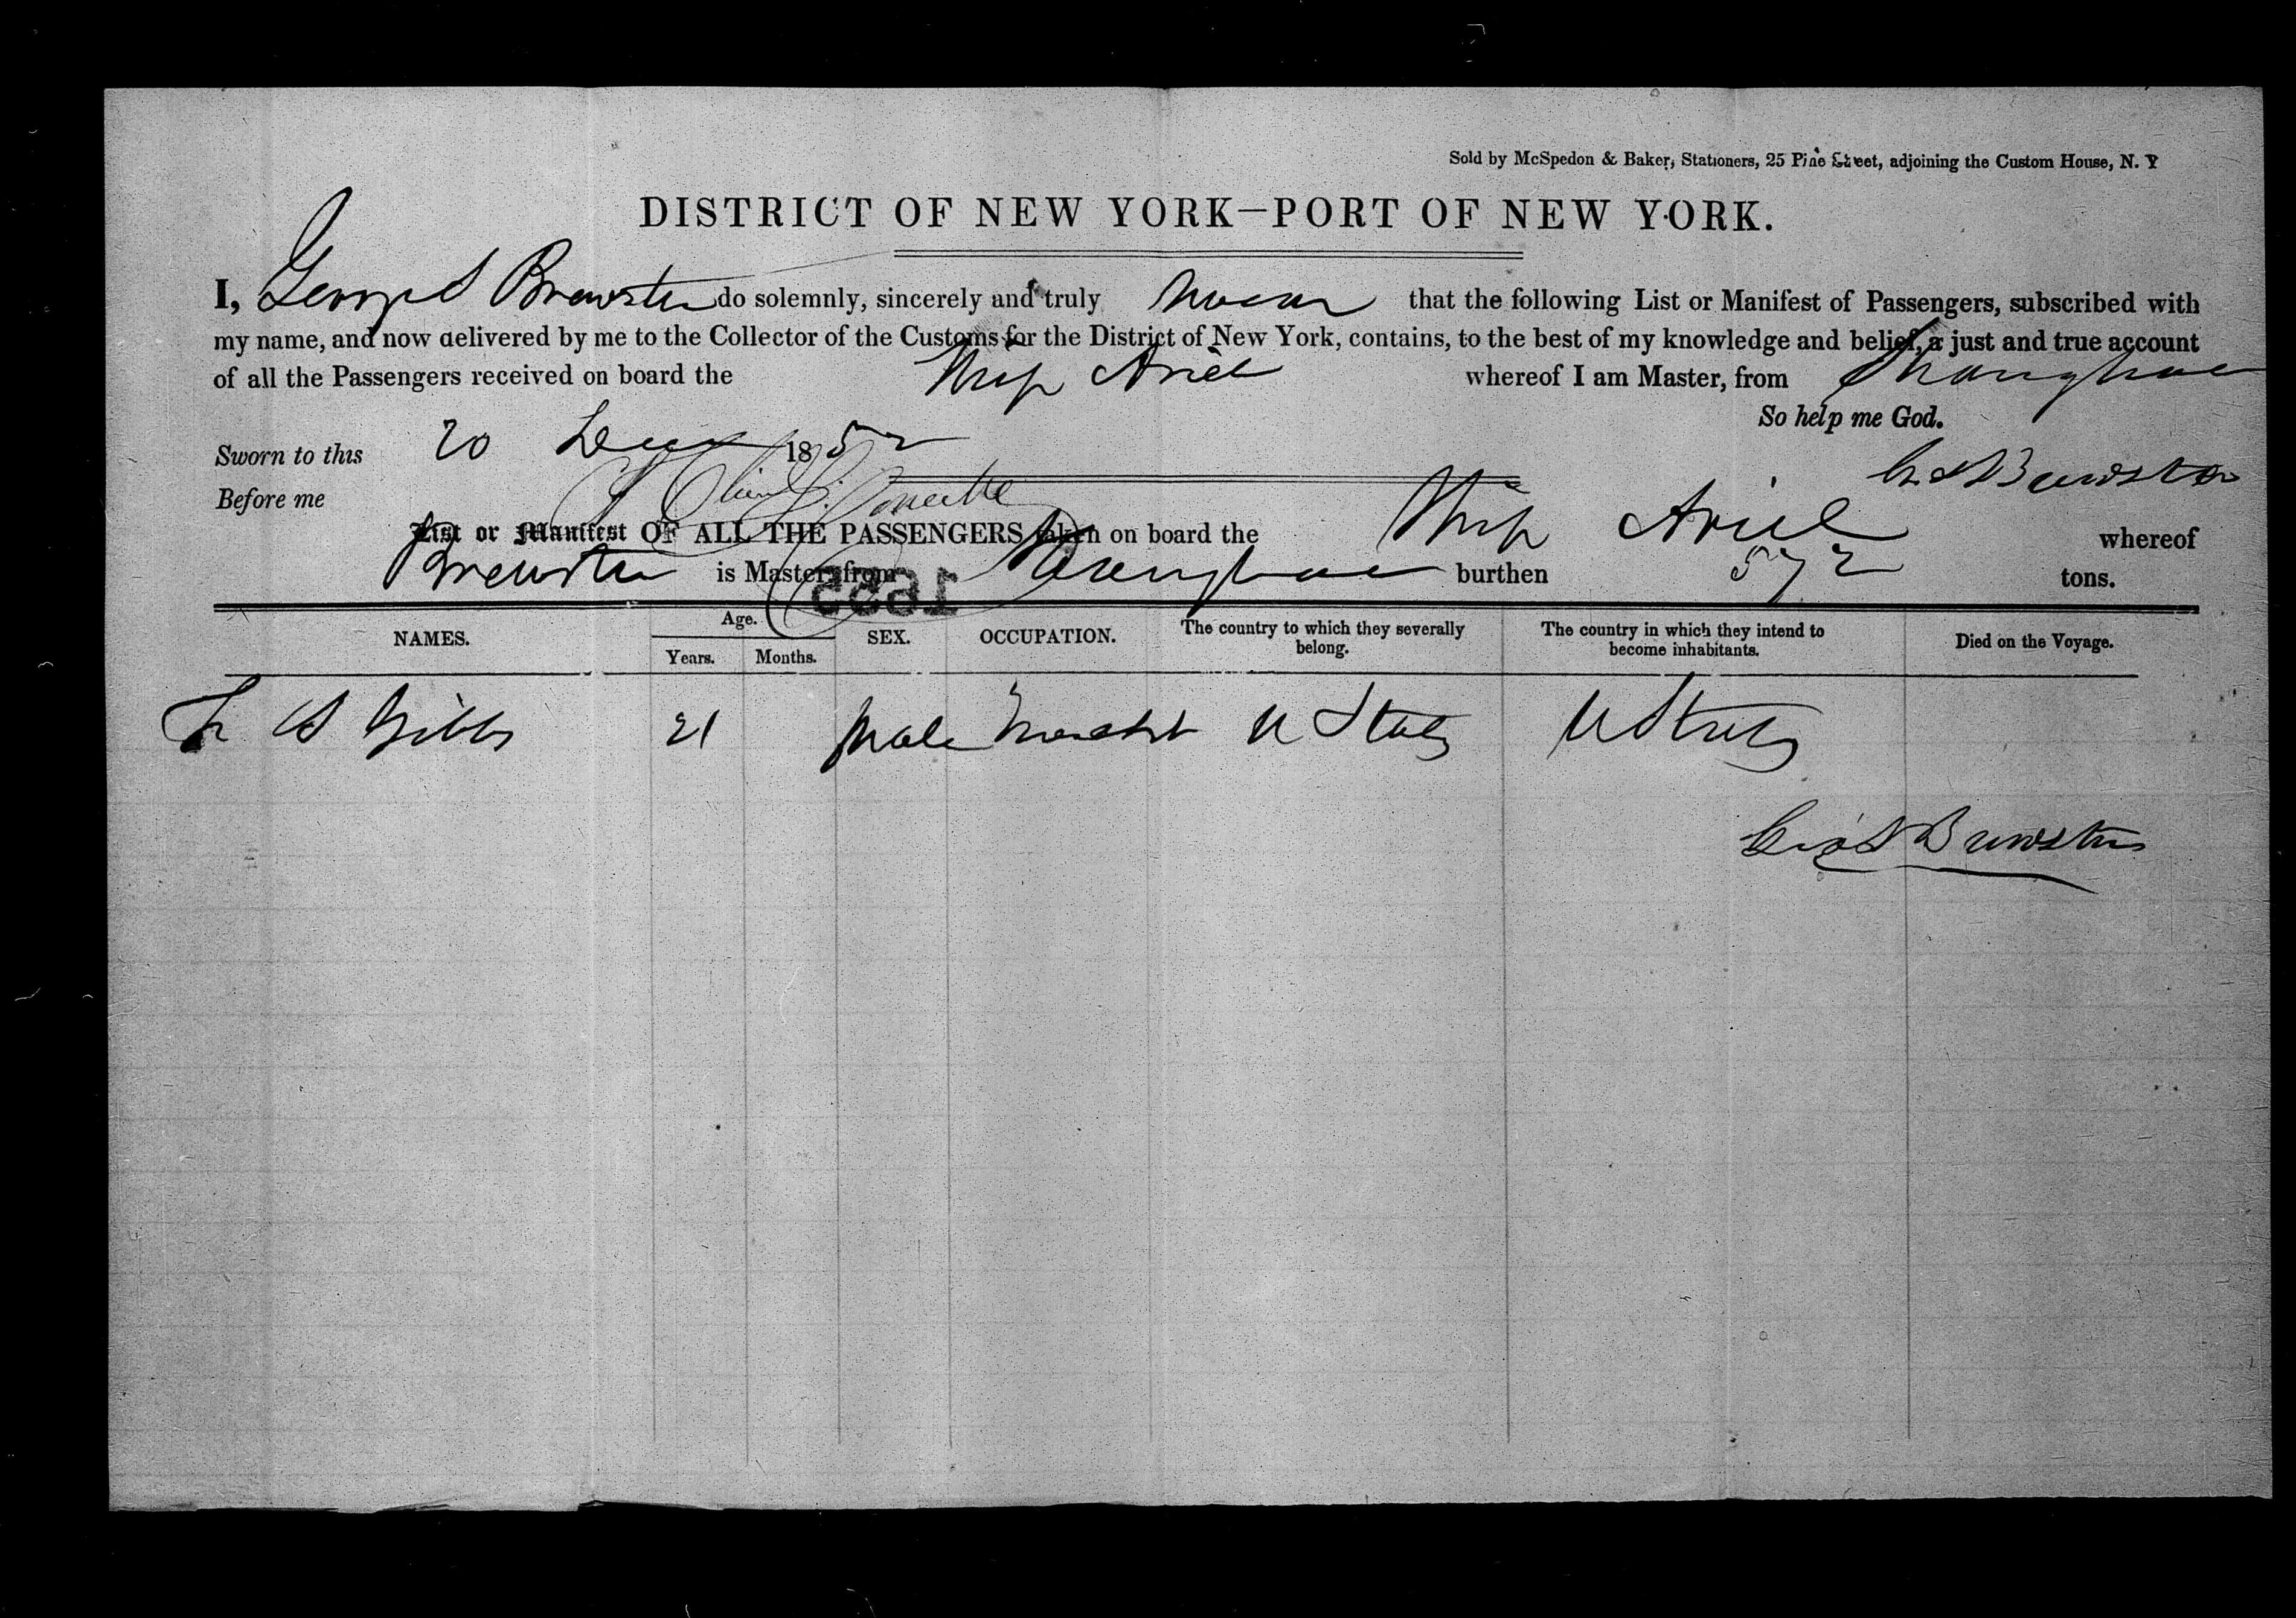 Sold by McSpedon & Baker, Stationers, 25 Pine Street, adjoining the Custom House, N. Y
DISTRICT OF NEW YORK—PORT OF NEW YORK.
I, George S Brewster do solemnly, sincerely and truly swear that the following List or Manifest of Passengers, subscribed with
my name, and now delivered by me to the Collector of the Customs for the District of New York, contains, to the best of my knowledge and belief, a just and true account
of all the Passengers received on board the Ship Ariel whereof I am Master, from Shanghae
So help me God.
Sworn to this 20 Dec 1852
Geo S Brewster
Before me
List or Manifest OF ALL THE PASSENGERS taken on board the Ship Ariel whereof
Brewster is Master, from Shanghae burthen 572 tons.
1655
NAMES. Age. Years. Months. SEX. OCCUPATION. The country to which they severally belong. The country in which they intend to become inhabitants. Died on the Voyage.
S Gibbs 21 Male Mercht U States U States
Geo S Brewster